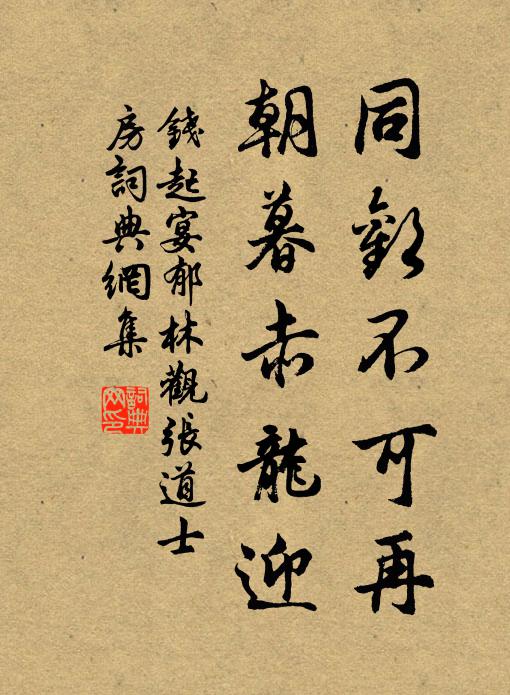 同歡不可再
朝暮赤龍迎
錢起宴郁林觀張道士
房詞典網集
詞典
網印